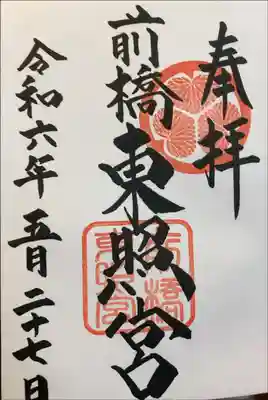 奉拝
前橋東照宮
令和六年五月二十七日
前橋東照宮